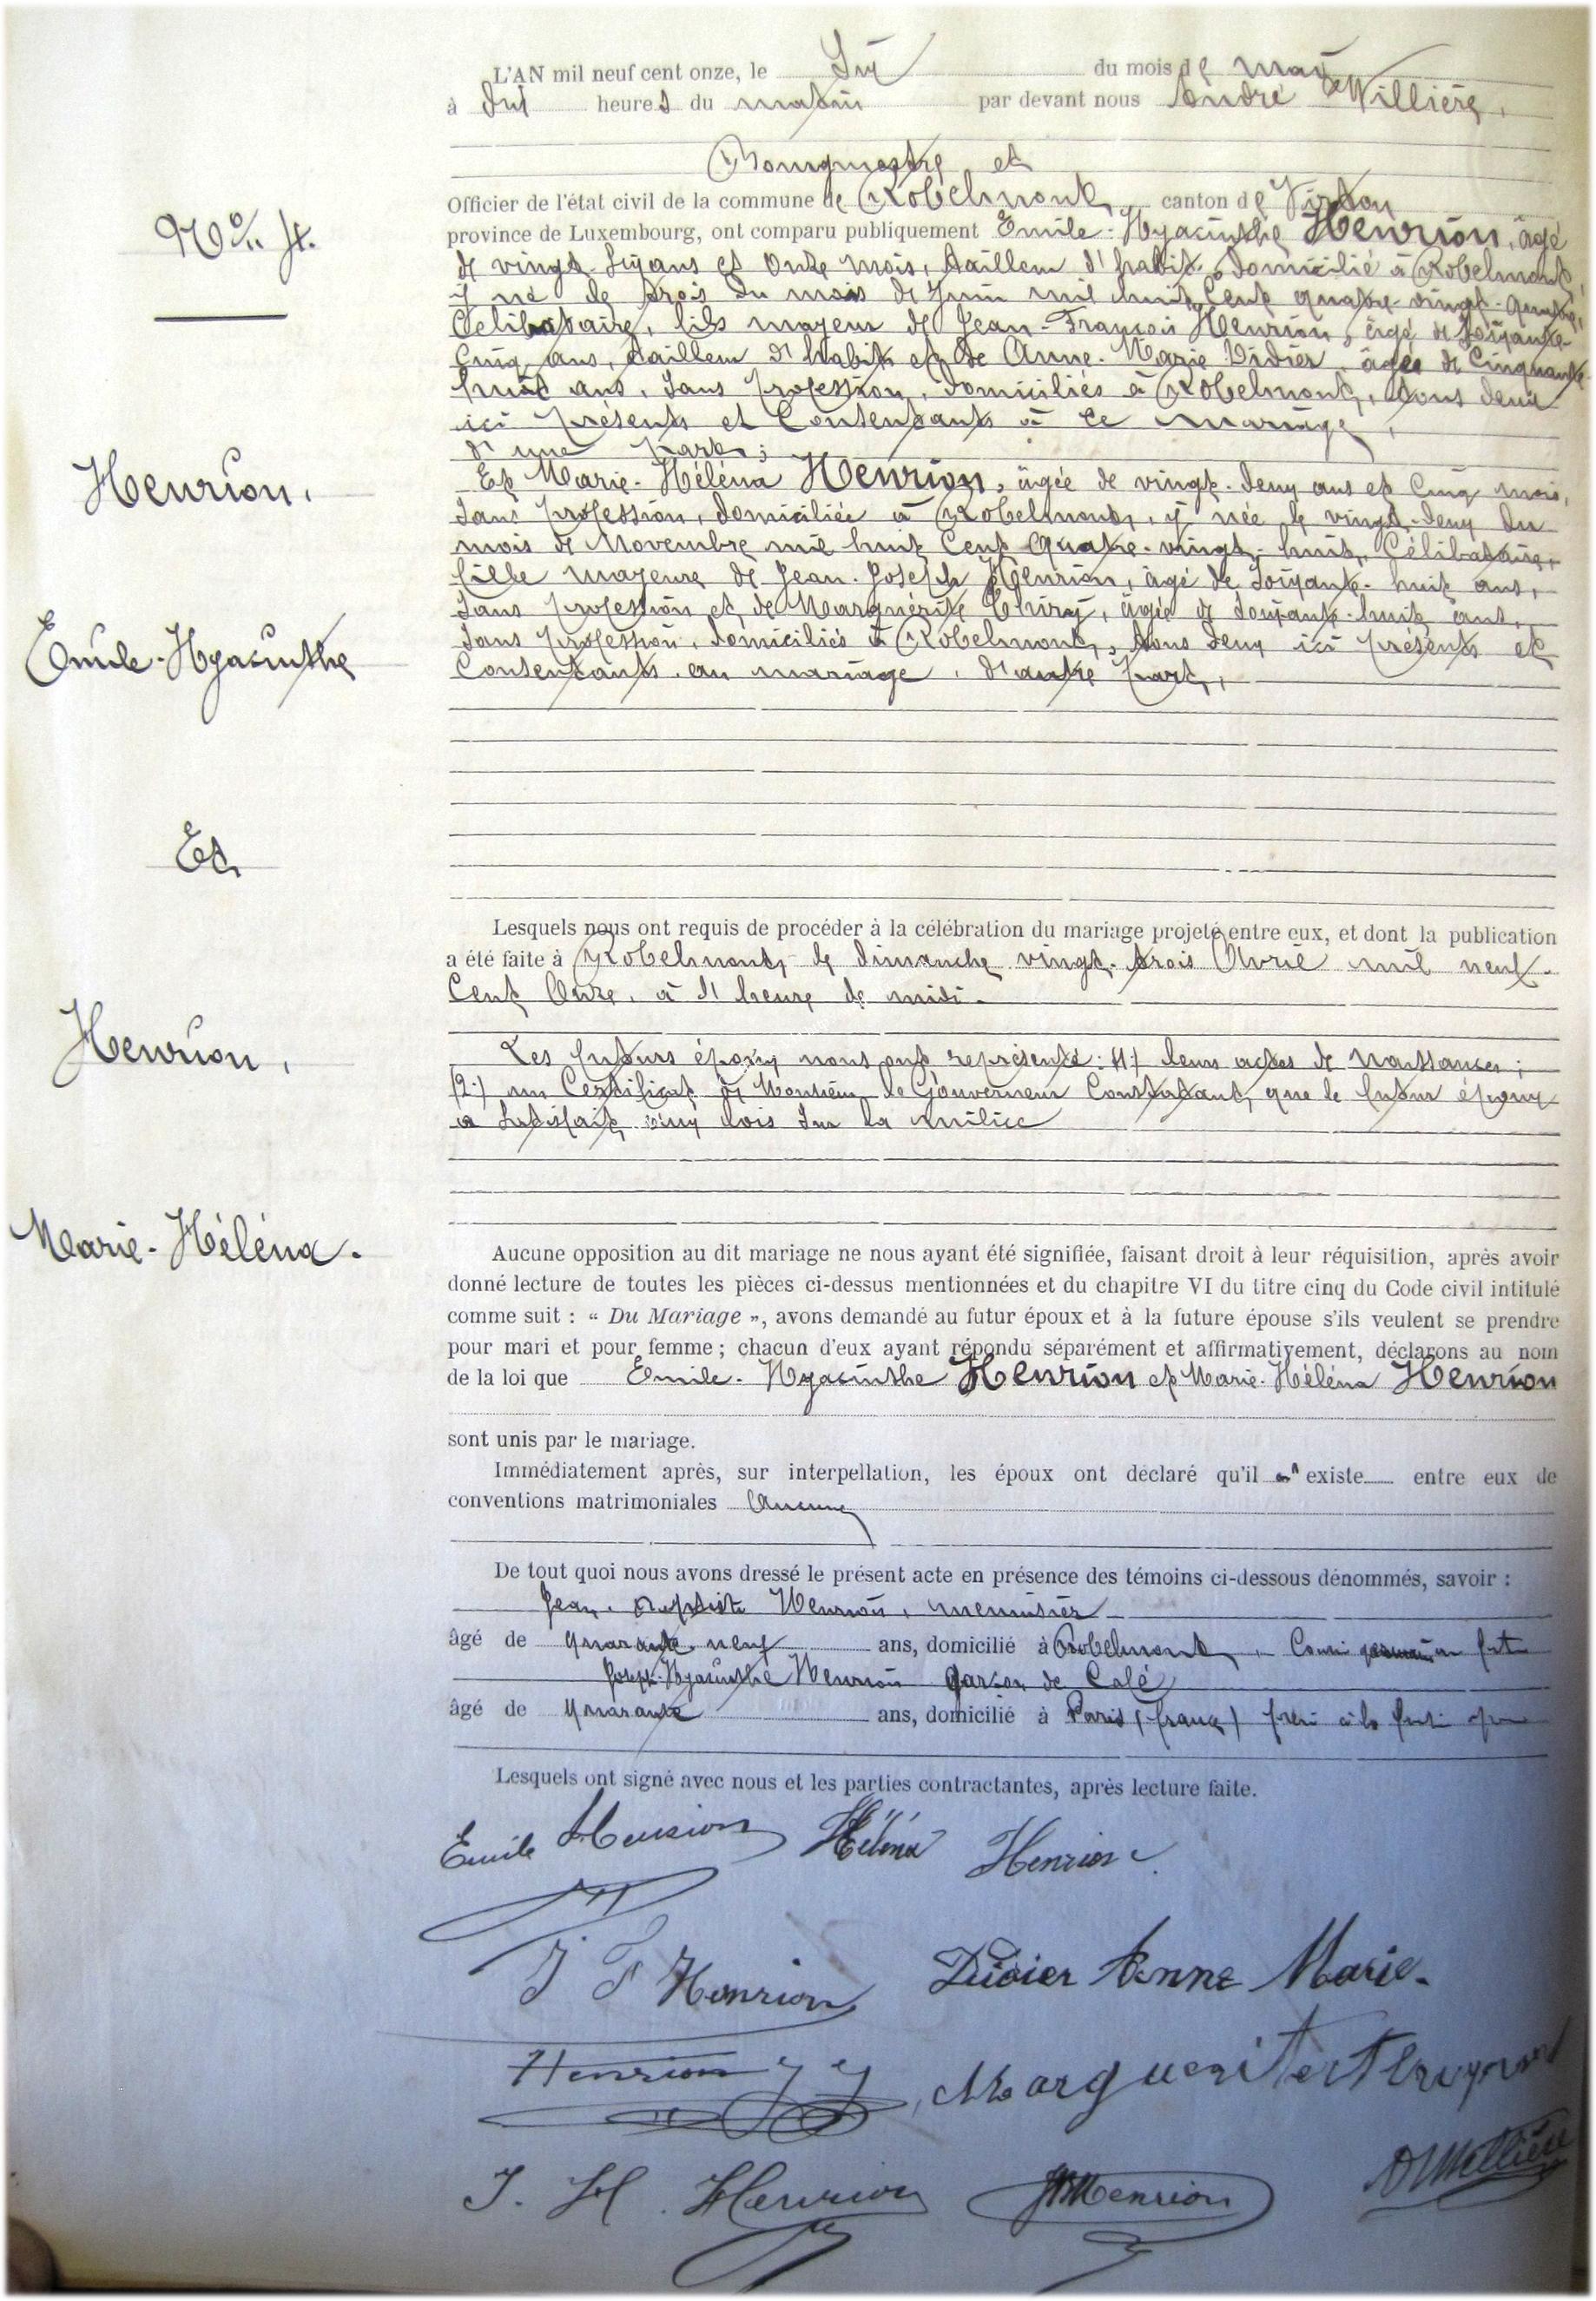 L'AN mil neuf cent onze, le Six du mois de mai
à dix heures du matin par devant nous André Willière,
Bourgmestre et
Officier de l'état civil de la commune de Robelmont, canton de Virton
province de Luxembourg, ont comparu publiquement Emile-Hyacinthe Henrion, âgé
de vingt-six ans et onze mois, tailleur d'habits, domicilié à Robelmont,
y né le trois du mois de Juin mil huit Cent quatre-vingt-quatre,
Célibataire, fils majeur de Jean-François Henrion, âgé de soixante-
cinq ans, tailleur d'habits et de Anne-Marie Didier, âgée de Cinquante-
huit ans, sans profession, domiciliés à Robelmont, tous deux
ici présents et Consentants à ce mariage,
d'une part;
Et Marie-Héléna Henrion, âgée de vingt-deux ans et Cinq mois,
sans profession, domiciliée à Robelmont, y née le vingt-deux du
mois de Novembre mil huit Cent Quatre-vingt-huit, Célibataire,
fille majeure de Jean-Joseph Henrion, âgé de soixante-huit ans,
sans profession et de Marguérite Thiry, âgée de soixante-huit ans,
sans profession, domiciliés à Robelmont, tous deux ici présents et
Consentants au mariage, d'autre part,
N° 4.
Henrion,
Emile-Hyacinthe
Et
Henrion,
Marie-Héléna.
Lesquels nous ont requis de procéder à la célébration du mariage projeté entre eux, et dont la publication
a été faite à Robelmont, le dimanche vingt-trois Avril mil neuf
Cent Onze, à l'heure de midi.
Les futurs époux nous ont représenté: 1) leurs actes de naissances;
2) un Certificat de Monsieur le Gouverneur Constatant que le futur époux
a satisfait aux lois sur la milice
Aucune opposition au dit mariage ne nous ayant été signifiée, faisant droit à leur réquisition, après avoir
donné lecture de toutes les pièces ci-dessus mentionnées et du chapitre VI du titre cinq du Code civil intitulé
comme suit : « Du Mariage », avons demandé au futur époux et à la future épouse s'ils veulent se prendre
pour mari et pour femme ; chacun d'eux ayant répondu séparément et affirmativement, déclarons au nom
de la loi que Emile-Hyacinthe Henrion et Marie-Héléna Henrion
sont unis par le mariage.
Immédiatement après, sur interpellation, les époux ont déclaré qu'il n'existe entre eux de
conventions matrimoniales Aucune
De tout quoi nous avons dressé le présent acte en présence des témoins ci-dessous dénommés, savoir :
Jean-Baptiste Henrion, menuisier
âgé de quarante-neuf ans, domicilié à Robelmont, Cousin germain
Joseph-Hyacinthe Henrion garçon de Café
âgé de quarante ans, domicilié à Paris (france) frère à la
Lesquels ont signé avec nous et les parties contractantes, après lecture faite.
Emile Henrion Héléna Henrion
J F Henrion Didier Anne Marie.
Henrion J J Marguerite
J. H. Henrion Henrion AWillière